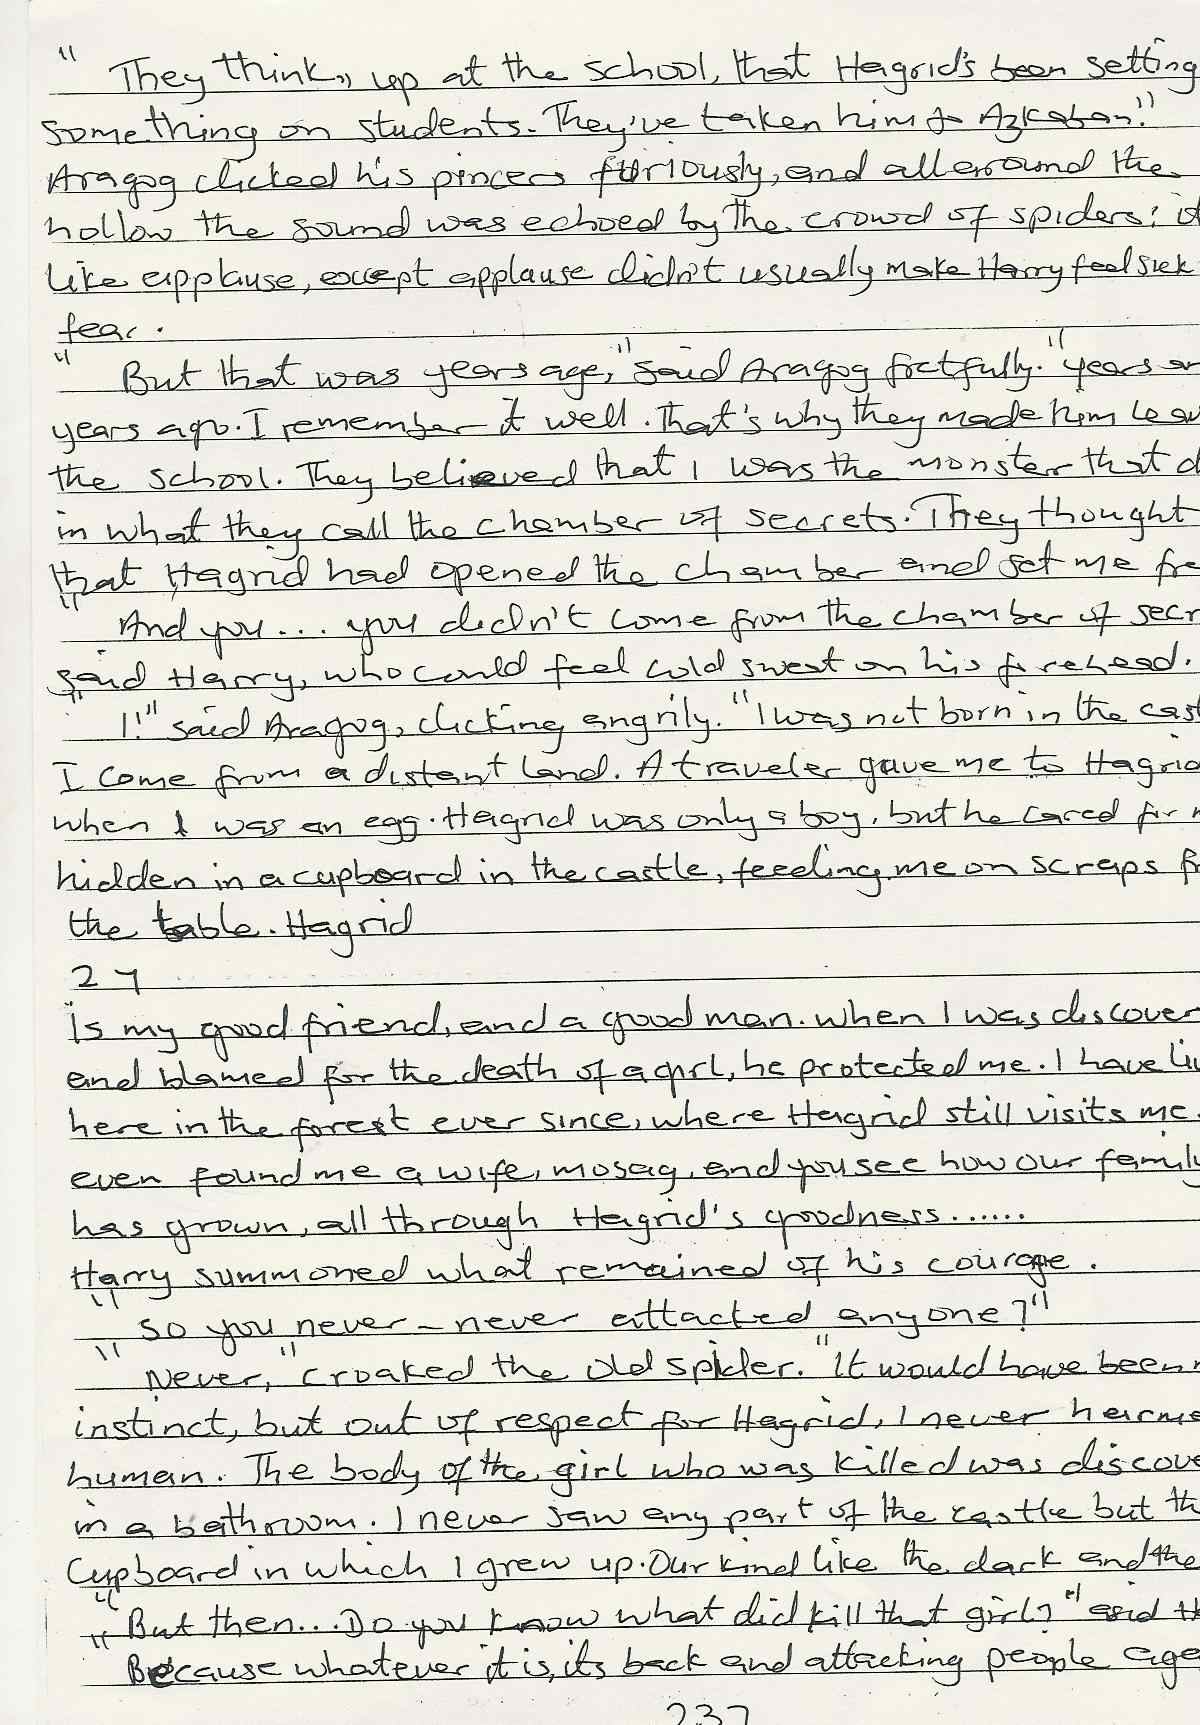 " They think, up at the school, that Hagrid's been setting
something on students. They've taken him to Azkaban."
Aragog clicked his pincers furiously, and all around the
hollow the sound was echoed by the crowd of spiders; it
like applause, except applause didn't usually make Harry feel sick
fear.
" But that was years ago," said Aragog fretfully. "years an
years ago. I remember it well. That's why they made him leav
the school. They believed that I was the monster that d
in what they call the chamber of secrets. They thought
that Hagrid had opened the chamber and set me fre
" And you... you didn't come from the chamber of secr
said Harry, who could feel cold sweat on his forehead.
" I!" said Aragog, clicking angrily. "I was not born in the cast
I come from a distant land. A traveler gave me to Hagrid
when I was an egg. Hagrid was only a boy, but he cared for m
hidden in a cupboard in the castle, feeding me on scraps fr
the table. Hagrid
27
Is my good friend, and a good man. when I was discover
and blamed for the death of a girl, he protected me. I have liv
here in the forest ever since, where Hagrid still visits me.
even found me a wife, mosag, and you see how our family
has grown, all through Hagrid's goodness......
Harry summoned what remained of his courage.
" So you never - never attacked anyone?"
" Never," croaked the old spider. "It would have been m
instinct, but out of respect for Hagrid, I never harme
human. The body of the girl who was killed was discove
in a bathroom. I never saw any part of the castle but th
Cupboard in which I grew up. Our kind like the dark and the
" But then... Do you know what did kill that girl?" said H
" Because whatever it is, its back and attacking people aga
237